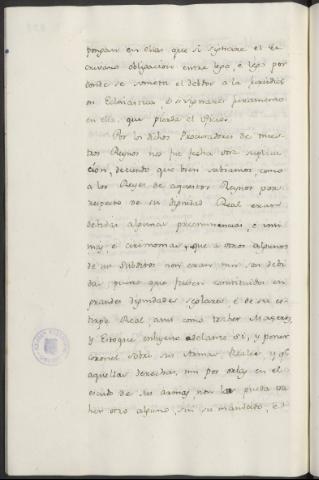 pongan en ellas, que si syciere el es
crivano obligacion entre lego, e lego por
donde se someta el debdor a la juridici
on Eclesiastica, o si ynterviere juramento
en ella, que pierda el Oficio.
Por los dichos Procuradores de nues
tros Reynos nos fue fecha otra suplica
ción, deciendo que bien sabiamos, como
a los Reyes de aquestos Reynos por
respecto de su dignidad Real eran
debidas algunas preeminencias, e insi
nias, e cirimonias, que a otros algunos
de sus Subditos non eran nin son debi
das, puesto que fuesen constituidos en
grandes dignidades seglares, e de su es
tirpe Real, ansi como traher Maceros,
y Estoque enhyesto adelante si, y poner
Coronel sobre sus Armas Reales, y
aquellas derechas, nin por orlas en el
escudo de sus armas non las pueda tra
her otro alguno, sin su mandado, e